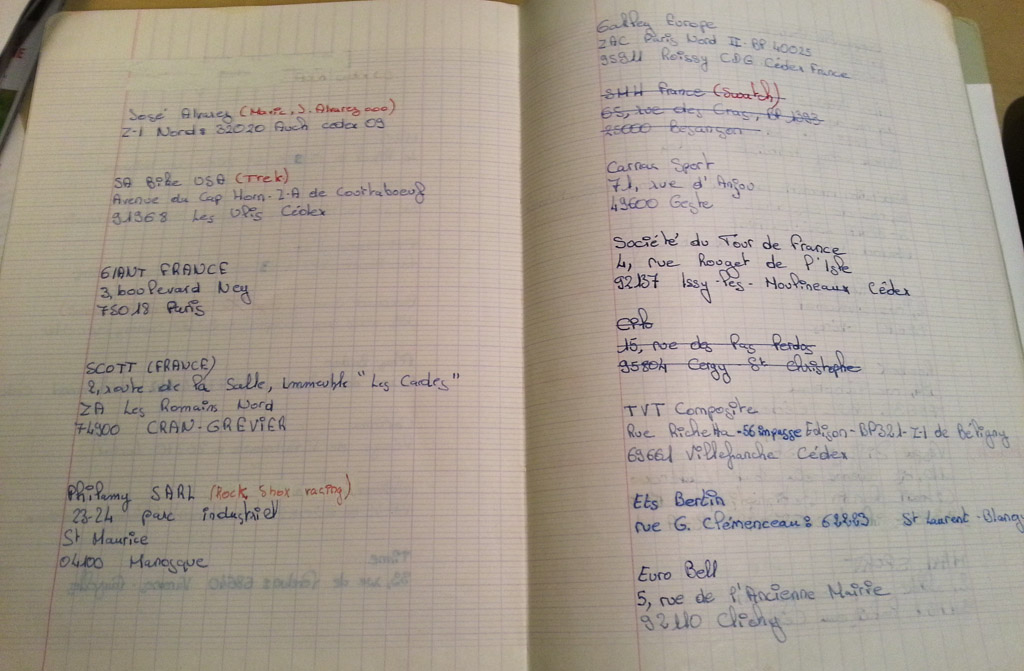 José Alvarez (Maric. J. Alvarez 000)
Z-I Nord: 32020 Auch cedex 09
SA Bike USA (Trek)
Avenue du Cap Horn - Z-A de Courtaboeuf
91968 Les Ulis Cédex
GIANT FRANCE
3, boulevard Ney
75018 Paris
SCOTT (FRANCE)
2, route de la Salle, immeuble "Les Cardes"
ZA Les Romains Nord
74900 CRAN-GREVIER
Philamy SARL (Rock Shox racing)
23-24 parc industriel
St Maurice
04100 Manosque
Europe
ZAC Paris Nord II - BP 40025
95911 Roissy CDG Cédex France
SMH France (Swatch)
rue des Cras, BP
25000 Besançon
Carnac Sport
71, rue d'Anjou
49600 Geste
Société du Tour de France
4, rue Rouget de l'Isle
92137 Issy-les-Moulineaux Cédex
15, rue des Pas Perdus
95804 Cergy St Christophe
TVT Composite
Rue Richetta - 56 impasse Edison - BP321 - Z-I de Béligny
69661 Villefranche Cédex
Ets Bertin
rue G. Clémenceau: 62223 St Laurent-Blangy
Euro Bell
5, rue de l'Ancienne Mairie
92110 Clichy